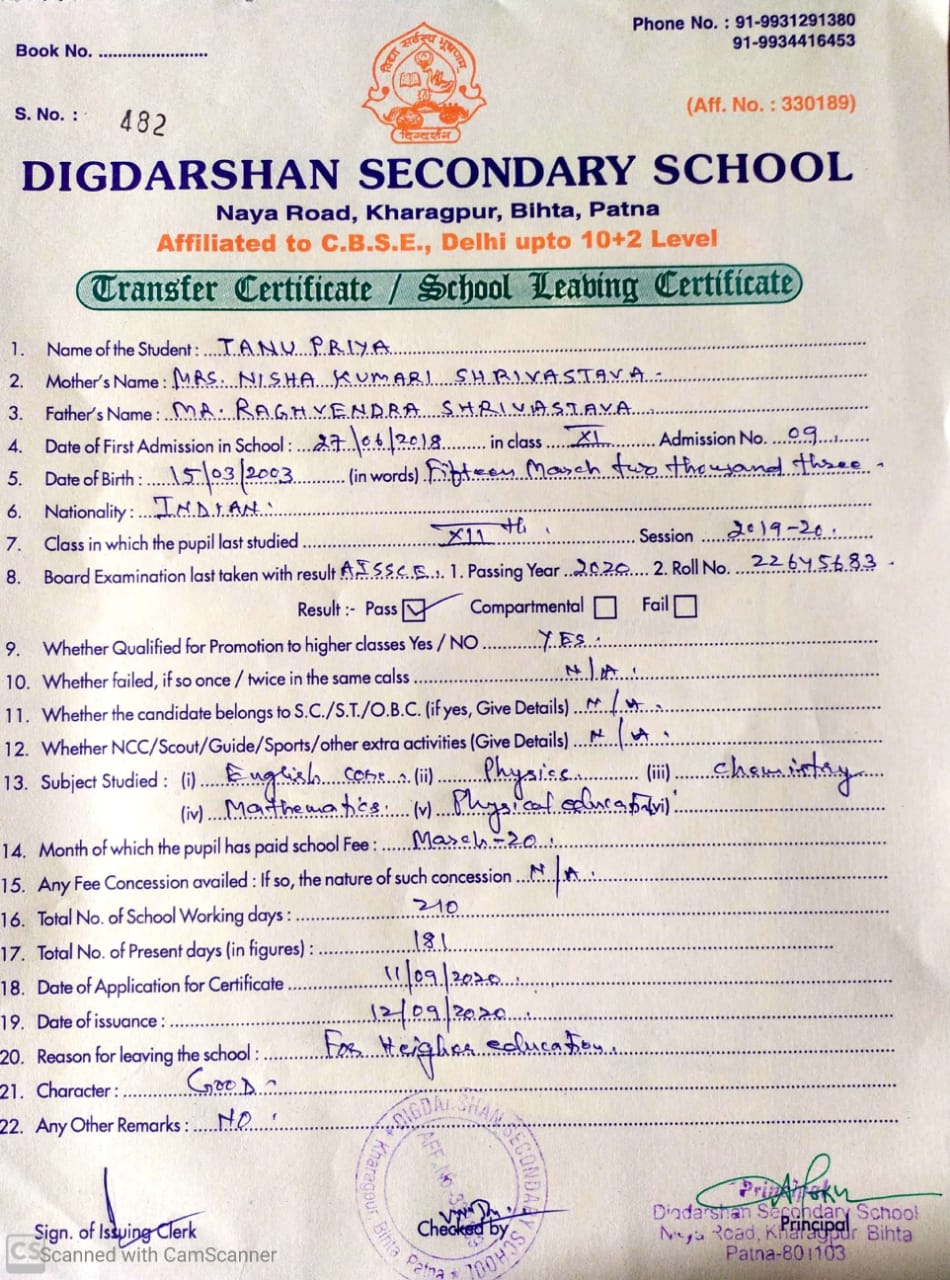 Phone No. : 91-9931291380
91-9934416453
Book No. ........................
विद्या सर्वस्य भूषणम्
दिग्दर्शन
S. No. : 482
(Aff. No. : 330189)
DIGDARSHAN SECONDARY SCHOOL
Naya Road, Kharagpur, Bihta, Patna
Affiliated to C.B.S.E., Delhi upto 10+2 Level
Transfer Certificate / School Leaving Certificate
1. Name of the Student : TANU PRIYA
2. Mother's Name : MRS. NISHA KUMARI SHRIVASTAVA -
3. Father's Name : MR. RAGHVENDRA SHRIVASTAVA
4. Date of First Admission in School : 27/06/2018 in class XI Admission No. 09
5. Date of Birth : 15/03/2003 (in words) Fifteen March two thousand three -
6. Nationality : INDIAN.
7. Class in which the pupil last studied XIIth. Session 2019-20.
8. Board Examination last taken with result AISSCE. 1. Passing Year 2020 2. Roll No. 22645683 -
Result :- Pass ☑ Compartmental ☐ Fail ☐
9. Whether Qualified for Promotion to higher classes Yes / NO YES.
10. Whether failed, if so once / twice in the same calss N/A.
11. Whether the candidate belongs to S.C./S.T./O.B.C. (if yes, Give Details) N/A.
12. Whether NCC/Scout/Guide/Sports/other extra activities (Give Details) N/A.
13. Subject Studied : (i) English core. (ii) Physics. (iii) chemistry
(iv) Mathematics. (v) Physical education (vi)
14. Month of which the pupil has paid school Fee : March-20.
15. Any Fee Concession availed : If so, the nature of such concession N/A.
16. Total No. of School Working days : 210
17. Total No. of Present days (in figures) : 181
18. Date of Application for Certificate 11/09/2020.
19. Date of issuance : 12/09/2020.
20. Reason for leaving the school : For Heigher education.
21. Character : GOOD -
22. Any Other Remarks : NO.
DIGDARSHAN SECONDARY SCHOOL
Kharagpur Bihta Patna
AFF. No. 33
Sign. of Issuing Clerk
Checked by
Principal
Principal
Digdarshan Secondary School
Naya Road, Kharagpur Bihta
Patna-801103
CS Scanned with CamScanner